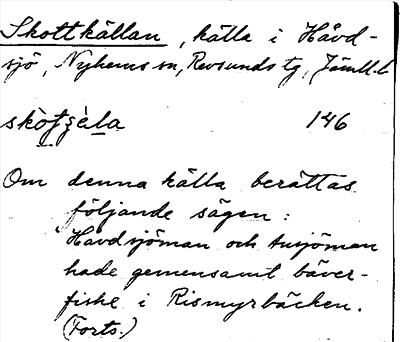 Skottkällan, källa i Håvd-
sjö, Nyhems sn, Revsunds tg, Jämtl. l.
146
Om denna källa berättas
följande sägen:
Håvdsjöman och
hade gemensamt bäver-
fiske i Rismyrbäcken.
(Forts.)